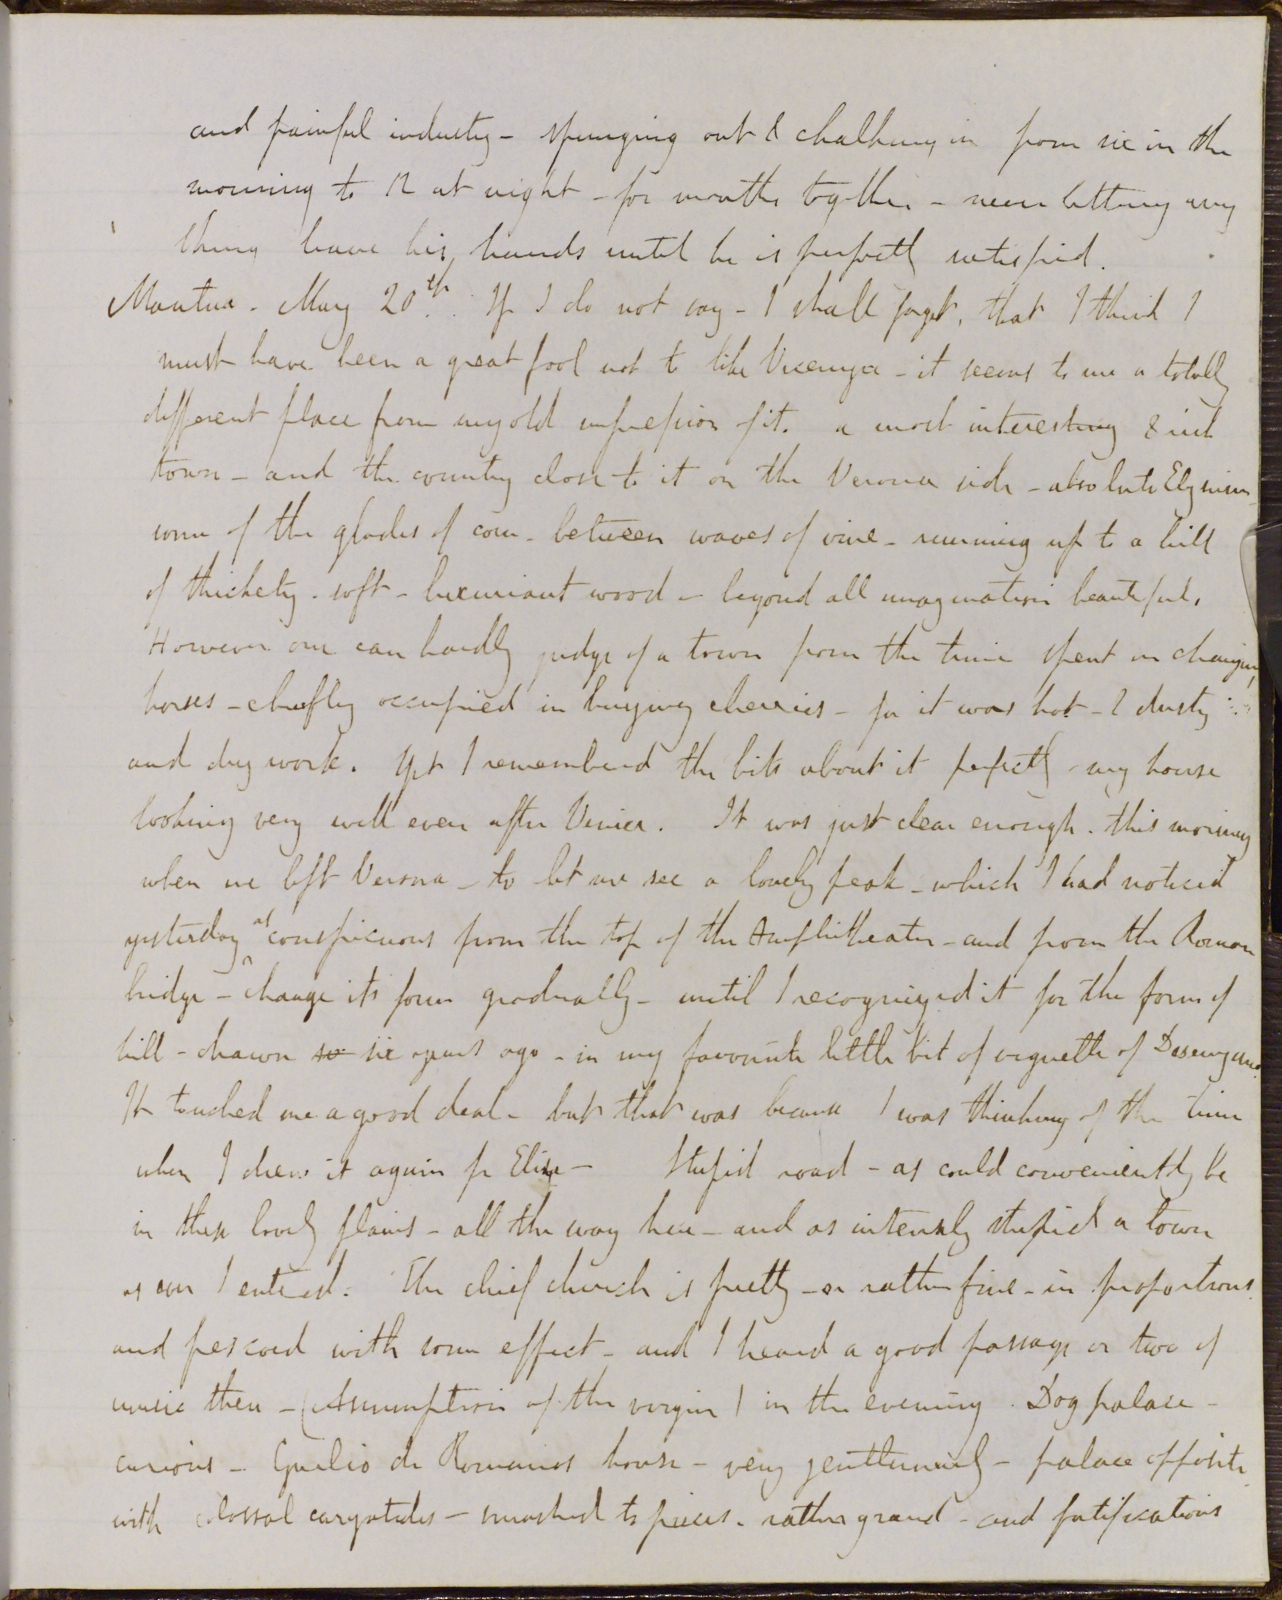 and painful industry - spunging out & chalking in from six in the
morning to 12 at night - for months together - never letting any
thing leave his hands until he is perfectly satisfied.
Mantua - May 20th. If I do not say - I shall forget, that I think I
must have been a great fool not to like Vicenza - it seems to me a totally
different place from my old impression of it. a most interesting & rich
town - and the country close to it on the Verona side - absolute Elysium -
some of the glades of corn - between waves of vine - running up to a hill
of thickety - soft - luxuriant wood - beyond all imagination beautiful.
However one can hardly judge of a town from the time spent in changing
horses - chiefly occupied in buying cherries - for it was hot - & dusty
and dry work. Yet I remembered the bits about it perfectly - my house
looking very well even after Venice. It was just clear enough - this morning
when we left Verona - to let me see a lovely peak - which I had noticed
yesterday as conspicuous from the top of the Amphitheatre - and from the Roman
bridge - change its form gradually - until I recognized it for the form of
hill - drawn so six years ago - in my favourite little bit of vignette of Desenzano.
It touched me a good deal - but that was because I was thinking of the time
when I drew it again for Elise - Stupid road - as could conveniently be
in these lovely plains - all the way here - and as intensely stupid a town
as ever I entered. The chief church is pretty - or rather fine - in proportions
and frescoed with some effect - and I heard a good passage or two of
music there - (Assumption of the virgin) in the evening. Dog palace -
curious - Guilio de Romanos house - very gentlemanly - palace opposite
with colossal caryatides - smashed to pieces - rather grand - and fortifications